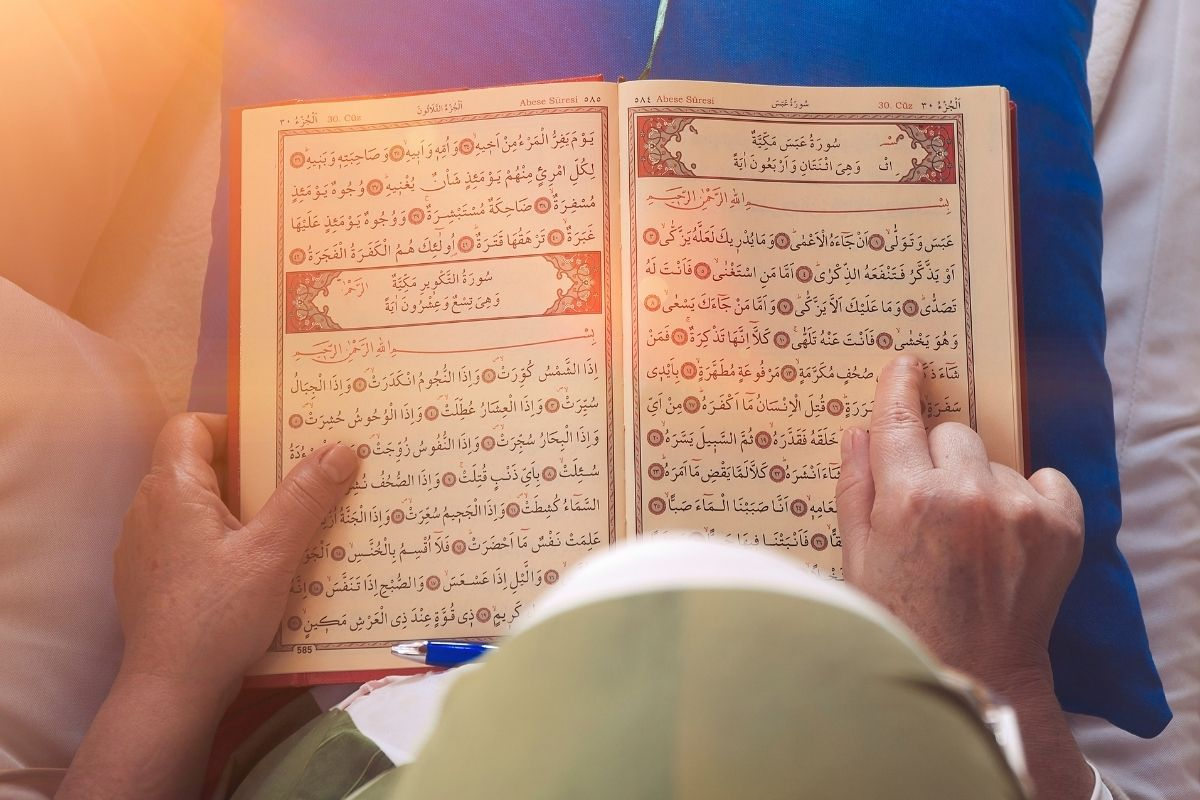 اَلْجُزْءُ ٣٠ 30. Cüz سُورَةُ عَبَسَ Abese Sûresi ٥٨٤
سُورَةُ عَبَسَ مَكِّيَّةٌ
وَهِىَ اثْنَتَانِ وَاَرْبَعُونَ اٰيَةً
بِسْمِ اللهِ الرَّحْمٰنِ الرَّحِيمِ
عَبَسَ وَتَوَلّٰىۙ ﴿١﴾ اَنْ جَٓاءَهُ الْاَعْمٰىۜ ﴿٢﴾ وَمَا يُدْرِيكَ لَعَلَّهُ يَزَّكّٰىۙ ﴿٣﴾
اَوْ يَذَّكَّرُ فَتَنْفَعَهُ الذِّكْرٰىۜ ﴿٤﴾ اَمَّا مَنِ اسْتَغْنٰىۙ ﴿٥﴾ فَاَنْتَ لَهُ
تَصَدّٰىۜ ﴿٦﴾ وَمَا عَلَيْكَ اَلَّا يَزَّكّٰىۜ ﴿٧﴾ وَاَمَّا مَنْ جَٓاءَكَ يَسْعٰىۙ ﴿٨﴾
وَهُوَ يَخْشٰىۙ ﴿٩﴾ فَاَنْتَ عَنْهُ تَلَهّٰىۚ ﴿١٠﴾ كَلَّٓا اِنَّهَا تَذْكِرَةٌۚ ﴿١١﴾ فَمَنْ
شَٓاءَ صُحُفٍ مُكَرَّمَةٍۙ ﴿١٣﴾ مَرْفُوعَةٍ مُطَهَّرَةٍۙ ﴿١٤﴾ بِاَيْدٖى
سَفَرَةٍۙ ﴿١٦﴾ قُتِلَ الْاِنْسَانُ مَٓا اَكْفَرَهُۜ ﴿١٧﴾ مِنْ اَىِّ
خَلَقَهُ فَقَدَّرَهُۙ ﴿١٩﴾ ثُمَّ السَّبٖيلَ يَسَّرَهُۙ ﴿٢٠﴾
اَنْشَرَهُۜ ﴿٢٢﴾ كَلَّا لَمَّا يَقْضِ مَٓا اَمَرَهُۜ ﴿٢٣﴾
﴿٢٤﴾ اَنَّا صَبَبْنَا الْمَٓاءَ صَبًّاۙ ﴿٢٥﴾
﴿٢٦﴾ فَاَنْبَتْنَا فٖيهَا
٥٨٥ Abese Sûresi اَلْجُزْءُ الثَّلَاثُونَ 30. Cüz اَلْجُزْءُ ٣٠
يَوْمَ يَفِرُّ الْمَرْءُ مِنْ اَخٖيهِۙ ﴿٣٤﴾ وَاُمِّهٖ وَاَبٖيهِۙ ﴿٣٥﴾ وَصَاحِبَتِهٖ وَبَنٖيهِۜ ﴿٣٦﴾
لِكُلِّ امْرِئٍ مِنْهُمْ يَوْمَئِذٍ شَأْنٌ يُغْنٖيهِۜ ﴿٣٧﴾ وُجُوهٌ يَوْمَئِذٍ
مُسْفِرَةٌۙ ﴿٣٨﴾ ضَاحِكَةٌ مُسْتَبْشِرَةٌۚ ﴿٣٩﴾ وَوُجُوهٌ يَوْمَئِذٍ عَلَيْهَا
غَبَرَةٌۙ ﴿٤٠﴾ تَرْهَقُهَا قَتَرَةٌۜ ﴿٤١﴾ اُو۬لٰٓئِكَ هُمُ الْكَفَرَةُ الْفَجَرَةُ ﴿٤٢﴾
سُورَةُ التَّكْوِيرِ مَكِّيَّةٌ
وَهِىَ تِسْعٌ وَعِشْرُونَ اٰيَةً
بِسْمِ اللهِ الرَّحْمٰنِ الرَّحِيمِ
اِذَا الشَّمْسُ كُوِّرَتْۙ ﴿١﴾ وَاِذَا النُّجُومُ انْكَدَرَتْۙ ﴿٢﴾ وَاِذَا الْجِبَالُ
سُيِّرَتْۙ ﴿٣﴾ وَاِذَا الْعِشَارُ عُطِّلَتْۙ ﴿٤﴾ وَاِذَا الْوُحُوشُ حُشِرَتْۙ ﴿٥﴾
وَاِذَا الْبِحَارُ سُجِّرَتْۙ ﴿٦﴾ وَاِذَا النُّفُوسُ زُوِّجَتْۙ ﴿٧﴾
سُئِلَتْۙ ﴿٨﴾ بِاَىِّ ذَنْبٍ قُتِلَتْۚ ﴿٩﴾ وَاِذَا الصُّحُفُ
السَّمَٓاءُ كُشِطَتْۙ ﴿١١﴾ وَاِذَا الْجَحٖيمُ سُعِّرَتْۙ ﴿١٢﴾ وَاِذَا الْجَنَّةُ
عَلِمَتْ نَفْسٌ مَٓا اَحْضَرَتْۜ ﴿١٤﴾ فَلَٓا اُقْسِمُ بِالْخُنَّسِۙ ﴿١٥﴾
وَالَّيْلِ اِذَا عَسْعَسَۙ ﴿١٧﴾ وَالصُّبْحِ اِذَا تَنَفَّسَۙ ﴿١٨﴾ اِنَّهُ
كَرٖيمٍۙ ﴿١٩﴾ ذٖى قُوَّةٍ عِنْدَ ذِى الْعَرْشِ مَكٖينٍۙ ﴿٢٠﴾
585